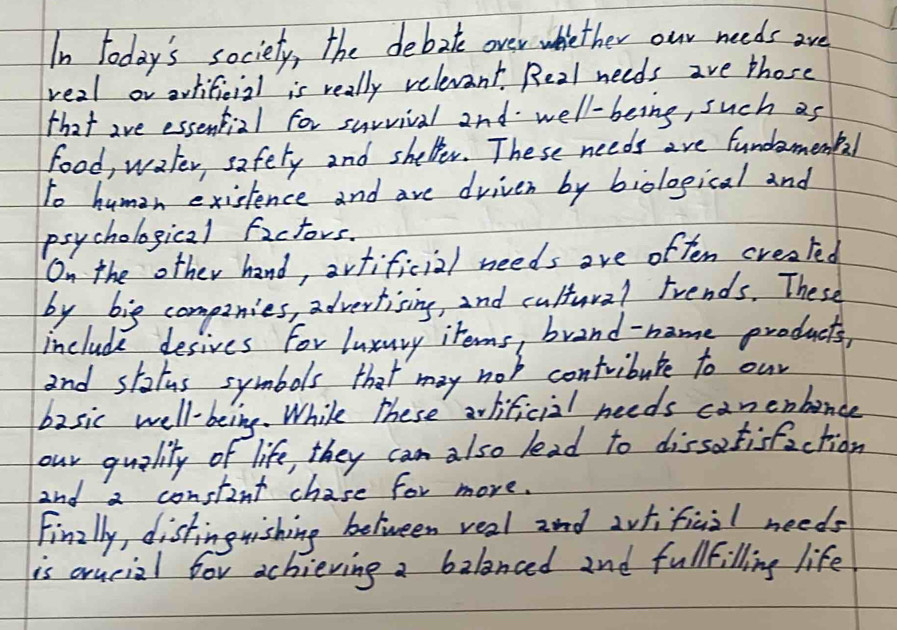 In today's society, the debate over whether our needs are
real or artificial is really relevant. Real needs are those
that are essential for survival and well-being, such as
food, water, safety and shelter. These needs are fundamental
to human existence and are driven by biological and
psychological factors.
On the other hand, artificial needs are often created
by big companies, advertising, and cultural trends. These
include desires for luxury items, brand-name products,
and status symbols that may not contribute to our
basic well-being. While these artificial needs can enhance
our quality of life, they can also lead to dissatisfaction
and a constant chase for more.
Finally, distinguishing between real and artificial needs
is crucial for achieving a balanced and fullfilling life.